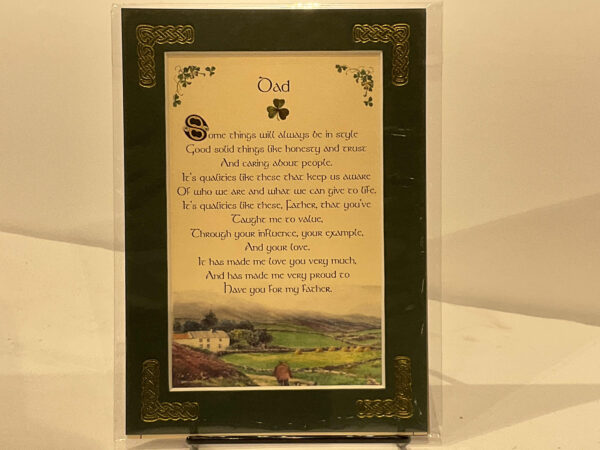 Dad
Some things will always be in style
Good solid things like honesty and trust
And caring about people.
It's qualities like these that keep us aware
Of who we are and what we can give to life.
It's qualities like these, Father, that you've
Taught me to value,
Through your influence, your example,
And your love.
It has made me love you very much,
And has made me very proud to
Have you for my father.